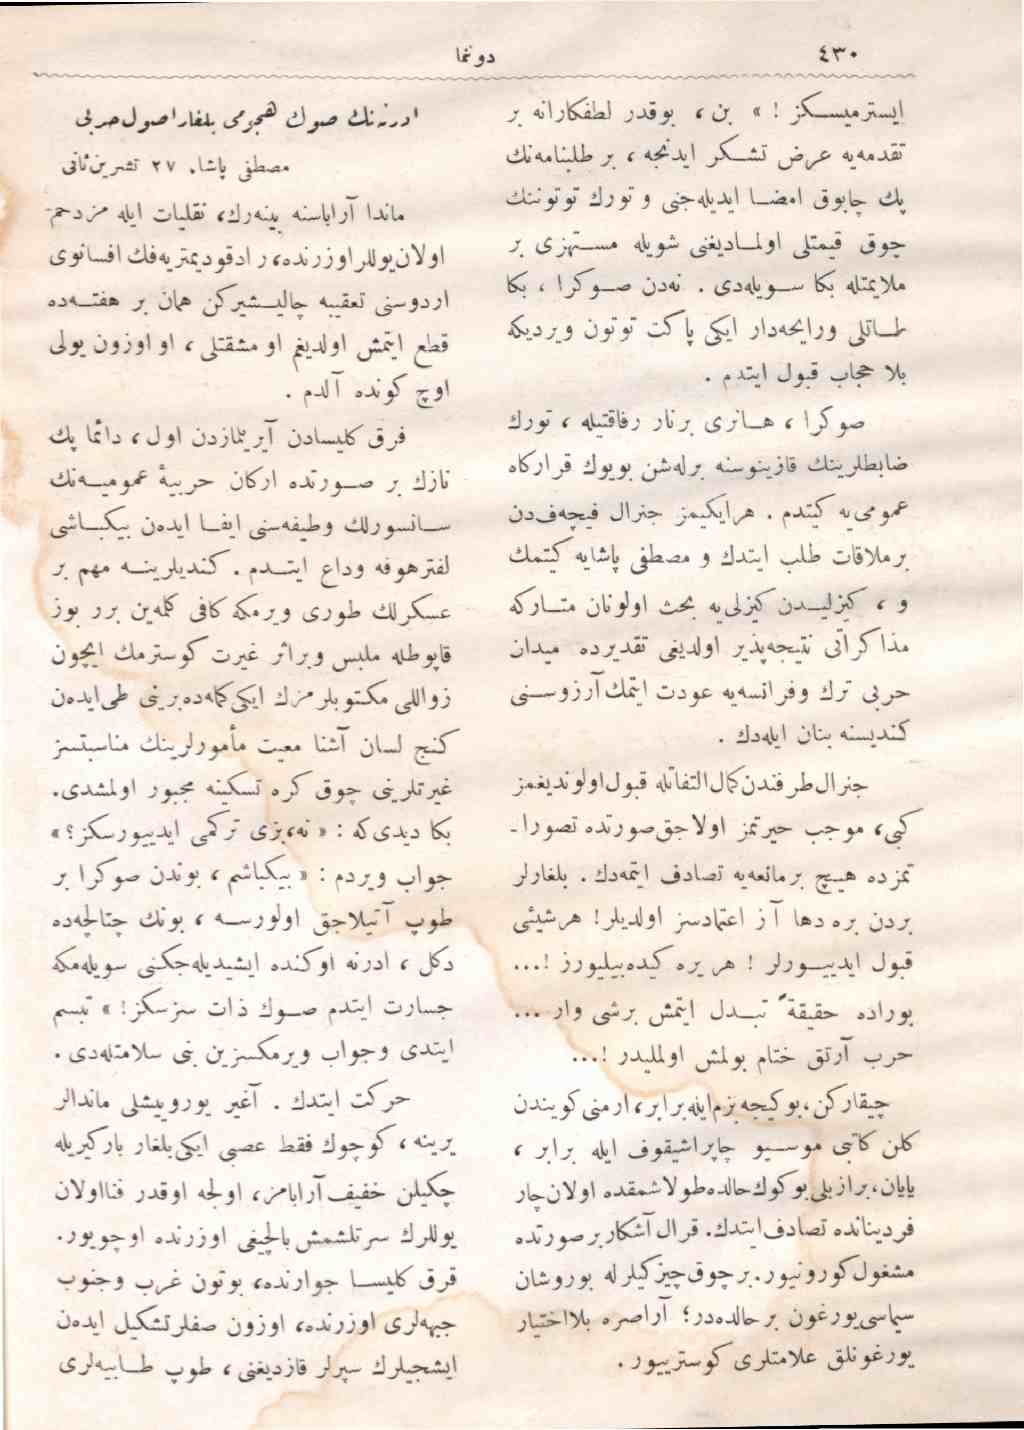 ٤٣٠
دوننما
ایسترمیسكز ! » بن ، بوقدر لطفكارانه بر
تقدمه‌یه عرض تشكر ایدنجه ، بر طلبنامه‌نك
پك چابوق امضا ایدیله‌جنی و تورك توتوننك
چوق قیمتلی اولمادیغنی شویله مستهزی بر
ملایمتله بكا سویله‌دی . نه‌دن صوكرا ، بكا
طاتلی ورایحه‌دار ایكی پاكت توتون ویردیكه
بلا حجاب قبول ایتدم .
صوكرا ، هانری برنار رفاقتیله ، تورك
ضابطلرینك قازینوسنه برله‌شن بویوك قرارگاه
عمومی‌یه كیتدم . هرایكیمز جنرال فیچه‌ف‌دن
برملاقات طلب ایتدك و مصطفی پاشایه كیتمك
و ، كیزلیدن كیزلی‌یه بحث اولونان متاركه
مذاكراتی نتیجه‌پذیر اولدیغی تقدیرده میدان
حربی ترك وفرانسه‌یه عودت ایتمك آرزوسنی
كندیسنه بنان ایله‌دك .
جنرال طرفندن كمال التفاتله قبول اولوندیغمز
كبی، موجب حیرتمز اولاجق صورتده تصورا-
تمزده هیچ برمانعه‌یه تصادف ایتمه‌دك . بلغارلر
بردن بره دها آز اعتمادسز اولدیلر! هرشیئی
قبول ایدییورلر ! هر یره كیده‌بیلیورز !...
بوراده حقیقةً تبدل ایتمش برشی وار ...
حرب آرتق ختام بولمش اولملیدر !...
چیقاركن، بوكیجه بزم ایله برابر، ارمنی كویندن
كلن كاتبی موسیو چاپراشیقوف ایله برابر ،
یایان، براز بلی بوكوك حالده طولاشمقده اولان چار
فردینانده تصادف ایتدك. قرال آشكار برصورتده
مشغول كورونیور. برچوق چیزكیلر له بوروشان
سیماسی یورغون بر حالده‌در؛ آراصره بلااختیار
یورغونلق علامتلری كوستریبور .
ادرنه‌نك صوك هجومی بلغار اصول حربی
مصطفی پاشا، ٢٧ تشرین‌ثانی
ماندا آراباسنه بینه‌رك، نقلیات ایله مزدحم
اولان یوللر اوزرنده، رادقودیمتریه‌فك افسانوی
اردوسنی تعقیبه چالیشیركن همان بر هفته‌ده
قطع ایتمش اولدیغم او مشقتلی ، او اوزون یولی
اوچ كونده آلدم .
فرق كلیسادن آیریلمازدن اول، دائما پك
نازك بر صورتده اركان حربیهٔ عمومیه‌نك
سانسورلك وظیفه‌سنی ایفا ایده‌ن بیكباشی
لفترهوفه وداع ایتدم . كندیلرینه مهم بر
عسكرلك طوری ویرمكه كافی كله‌ین برر بوز
قاپوطله ملبس وبراثر غیرت كوسترمك ایچون
زواللی مكتوبلرمزك ایكی كله‌ده برینی طی ایده‌ن
كنج لسان آشنا معیت مأمورلرینك مناسبتسز
غیرتلرینی چوق كره تسكینه مجبور اولمشدی.
بكا دیدی كه : « نه، بزی تركمی ایدییورسكز؟ »
جواب ویردم : « بیكباشم ، بوندن صوكرا بر
طوپ آتیلاجق اولورسه ، بونك چتالجه‌ده
دكل ، ادرنه اوكنده ایشیدیله‌جكنی سویله‌مكه
جسارت ایتدم صوك ذات سزسكز! » تبسم
ایتدی وجواب ویرمكسزین بنی سلامتله‌دی .
حركت ایتدك . آغیر یورویشلی ماندالر
یرینه ، كوچوك فقط عصبی ایكی بلغار باركیریله
چكیلن خفیف آرابامز، اولجه اوقدر فنا اولان
یوللرك سرتلشمش بالچیغی اوزرنده اوچویور.
قرق كلیسا جوارنده، بوتون غرب وجنوب
جبهه‌لری اوزرنده، اوزون صفلر تشكیل ایده‌ن
ایشجیلرك سپرلر قازدیغنی ، طوپ طابیه‌لری